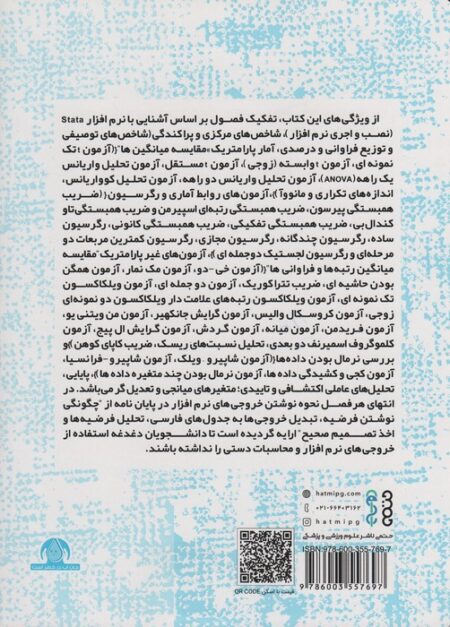 از ویژگی‌های این کتاب، تفکیک فصول بر اساس آشنایی با نرم افزار Stata
(نصب و اجری نرم افزار)، شاخص‌های مرکزی و پراکندگی (شاخص‌های توصیفی
و توزیع فراوانی و درصدی، آمار پارامتریک»مقایسه میانگین ها"{(آزمون t تک
نمونه ای، آزمون t وابسته (زوجی)، آزمون t مستقل، آزمون تحلیل واریانس
یک راهه (ANOVA)، آزمون تحلیل واریانس دو راهه، آزمون تحلیل کوواریانس،
اندازه‌های تکراری و مانووا)}، آزمون‌های روابط آماری و رگرسیون{(ضریب
همبستگی پیرسون، ضریب همبستگی رتبه‌ای اسپیرمن و ضریب همبستگی‌تاو
کندال‌بی، ضریب همبستگی تفکیکی، ضریب همبستگی کانونی، رگرسیون
ساده، رگرسیون چندگانه، رگرسیون مجازی، رگرسیون کمترین مربعات دو
مرحله‌ای و رگرسیون لجستیک دوجمله ای)}، آزمون‌های غیر پارامتریک"مقایسه
میانگین رتبه‌ها و فراوانی ها"{(آزمون خی-دو، آزمون مک نمار، آزمون همگن
بودن حاشیه ای، ضریب تتراکوریک، آزمون دو جمله ای، آزمون ویلکاکسون
تک نمونه ای، آزمون ویلکاکسون رتبه‌های علامت دار ویلکاکسون دو نمونه‌ای
زوجی، آزمون کروسکال والیس، آزمون گرایش جانکهیر، آزمون من ویتنی یو،
آزمون فریدمن، آزمون میانه، آزمون گردش، آزمون گرایش ال پیج، آزمون
کلموگروف اسمیرنف دو بعدی، تحلیل نسبت‌های ریسک، ضریب کاپای کوهن)}و
بررسی نرمال بودن داده‌ها{(آزمون شاپیرو. ویلک، آزمون شاپیرو-فرانسیا،
آزمون کجی و کشیدگی داده ها، آزمون نرمال بودن چند متغیره داده ها)}، پایایی،
تحلیل‌های عاملی اکتشافی و تاییدی؛ متغیرهای میانجی و تعدیل گر می‌باشد. در
انتهای هر فصل نحوه نوشتن خروجی‌های نرم افزار در پایان نامه از "چگونگی
نوشتن فرضیه، تبدیل خروجی‌ها به جدول‌های فارسی، تحلیل فرضیه‌ها و
اخذ تصمیم صحیح" ارایه گردیده است تا دانشجویان دغدغه استفاده از
خروجی‌های نرم افزار و محاسبات دستی را نداشته باشند.
hatmipg.com
۰۲۱-۶۶۴۰۳۱۶۲
hatmipg
حتمی
حتمی ناشر علوم ورزشی و پزشکی
ISBN: 978-600-355-769-7
9 786003 557697
قیمت با اسکن QR CODE